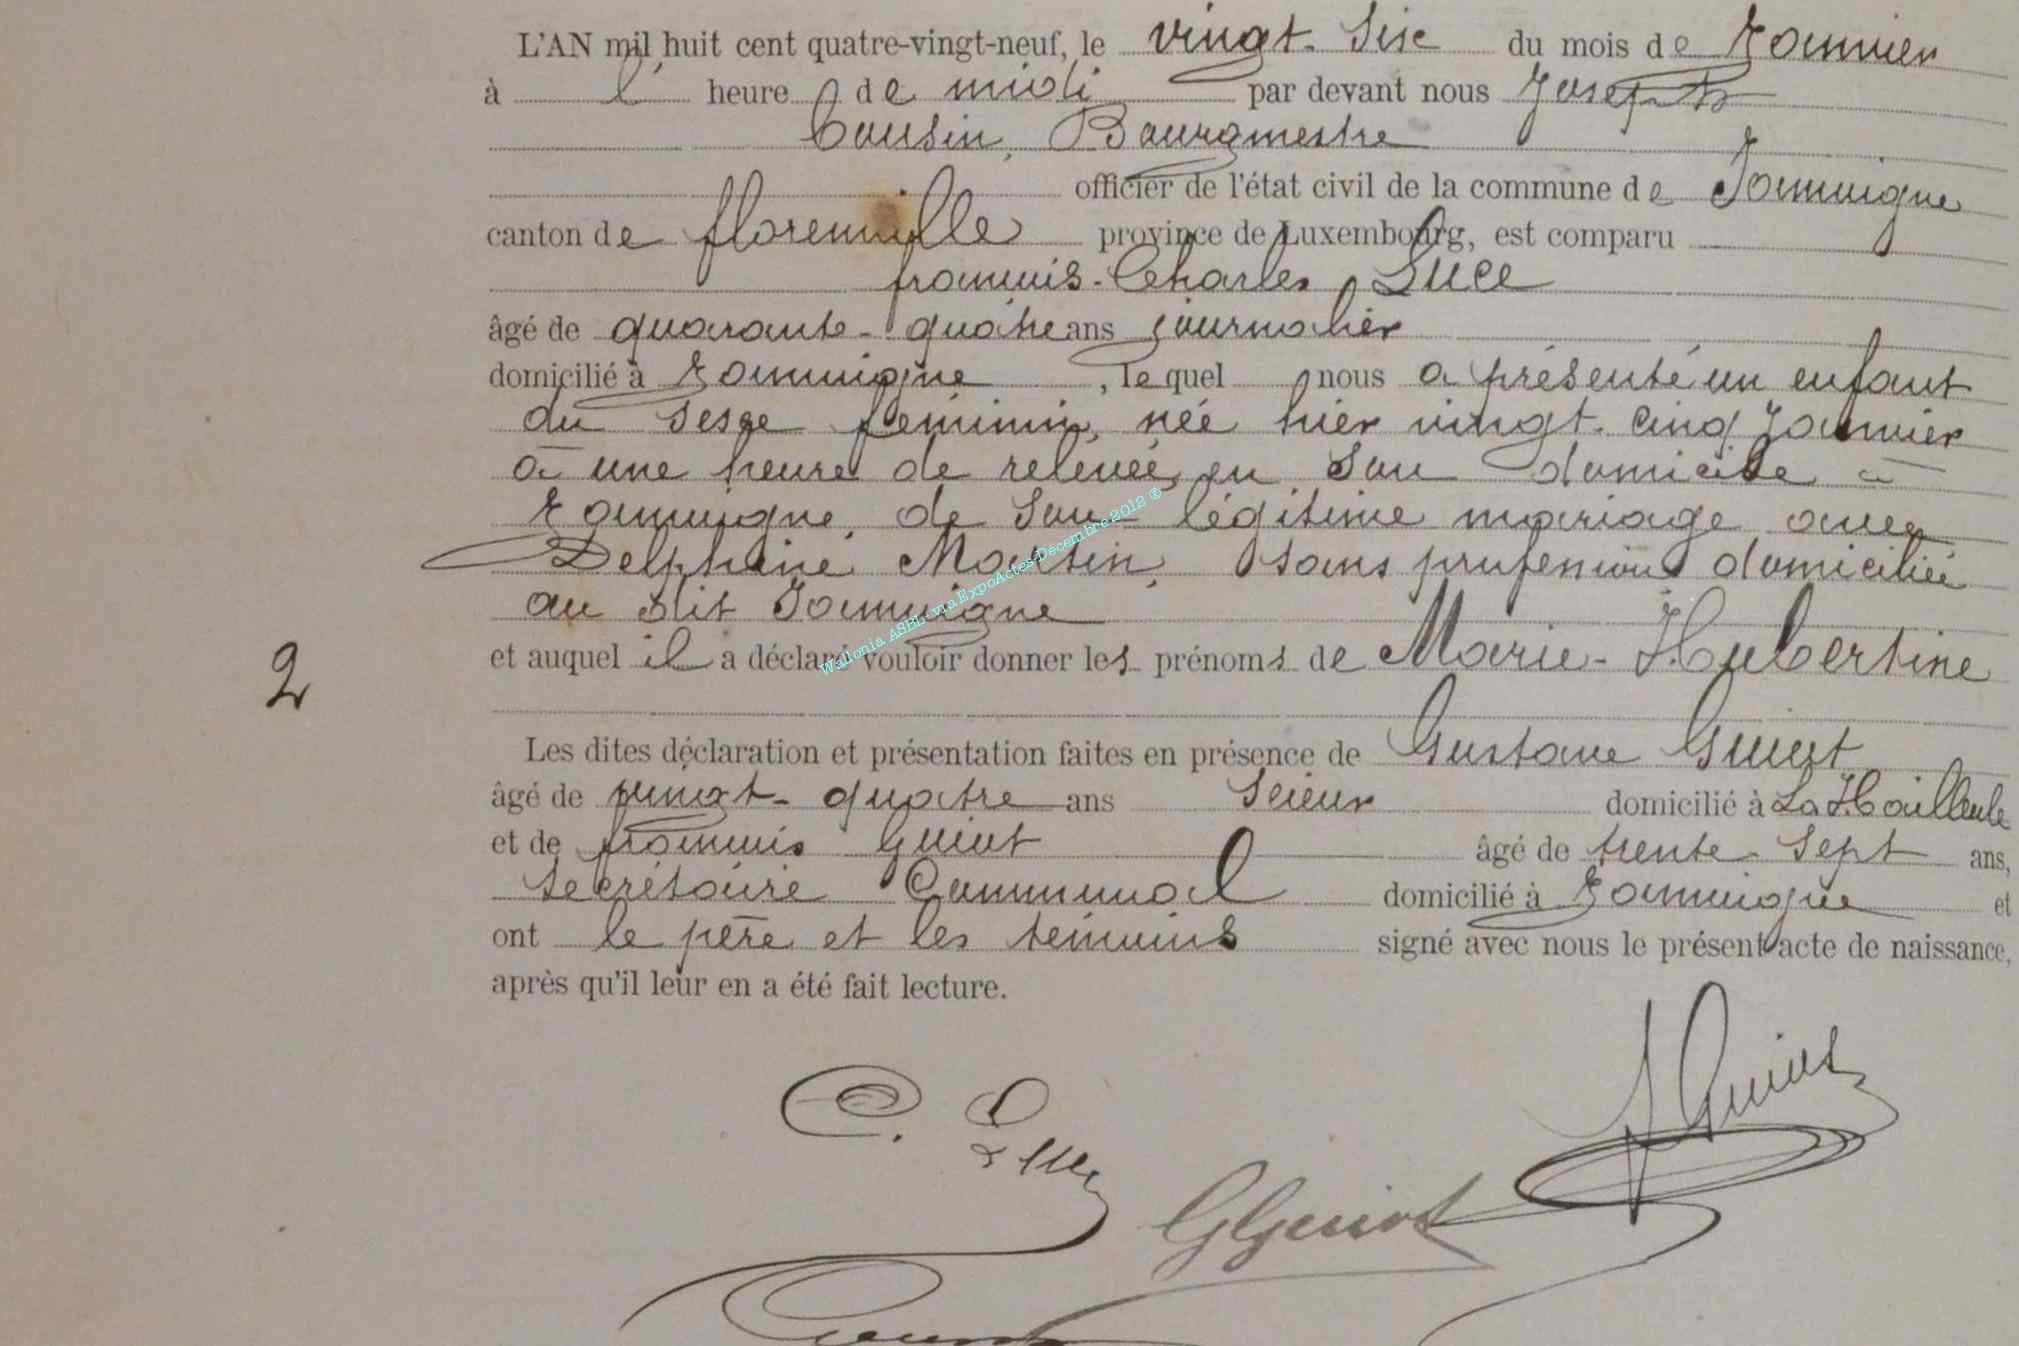 L'AN mil huit cent quatre-vingt-neuf, le vingt-six du mois de Janvier
à l' heure de midi par devant nous Joseph
Cousin, Bourgmestre
officier de l'état civil de la commune de Jamoigne
canton de florenville province de Luxembourg, est comparu
françois-Charles Luce
âgé de quarante-quatre ans journalier
domicilié à Jamoigne, lequel nous a présenté un enfant
du sexe féminin, née hier vingt-cinq Janvier
à une heure de relevée, en son domicile à
Jamoigne, de son légitime mariage avec
Delphine Martin, sans profession domiciliée
au dit Jamoigne
et auquel il a déclaré vouloir donner les prénoms de Marie-Hubertine
Walonia ASBL via ExpoActes Décembre 2012 ®
2
Les dites déclaration et présentation faites en présence de Gustave Guiot
âgé de vingt-quatre ans Scieur domicilié à La Hailleule
et de françois Guiot âgé de trente-sept ans,
Secrétaire Communal domicilié à Jamoigne et
ont le père et les témoins signé avec nous le présent acte de naissance,
après qu'il leur en a été fait lecture.
C. Luce
f Guiot
G Guiot